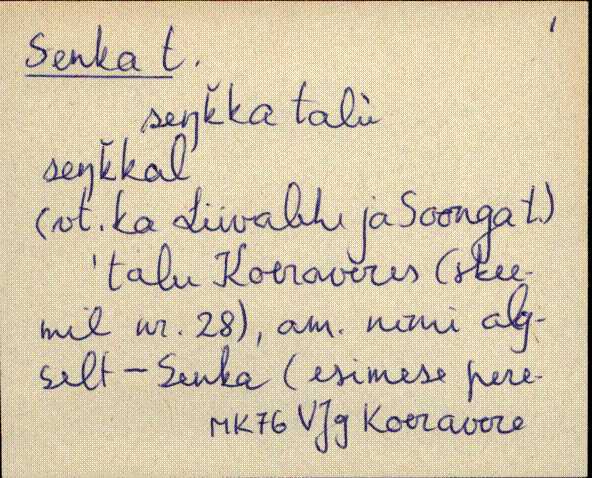 1
Senka t.
seŋk̆ka talù
seŋk̆kal
(vt. ka Liivalahe ja Soonga t.)
'talu Koeraveres (skee-
mil nr. 28), am. nimi alg-
selt – Senka (esimese pere-
MK76 VJg Koeravere